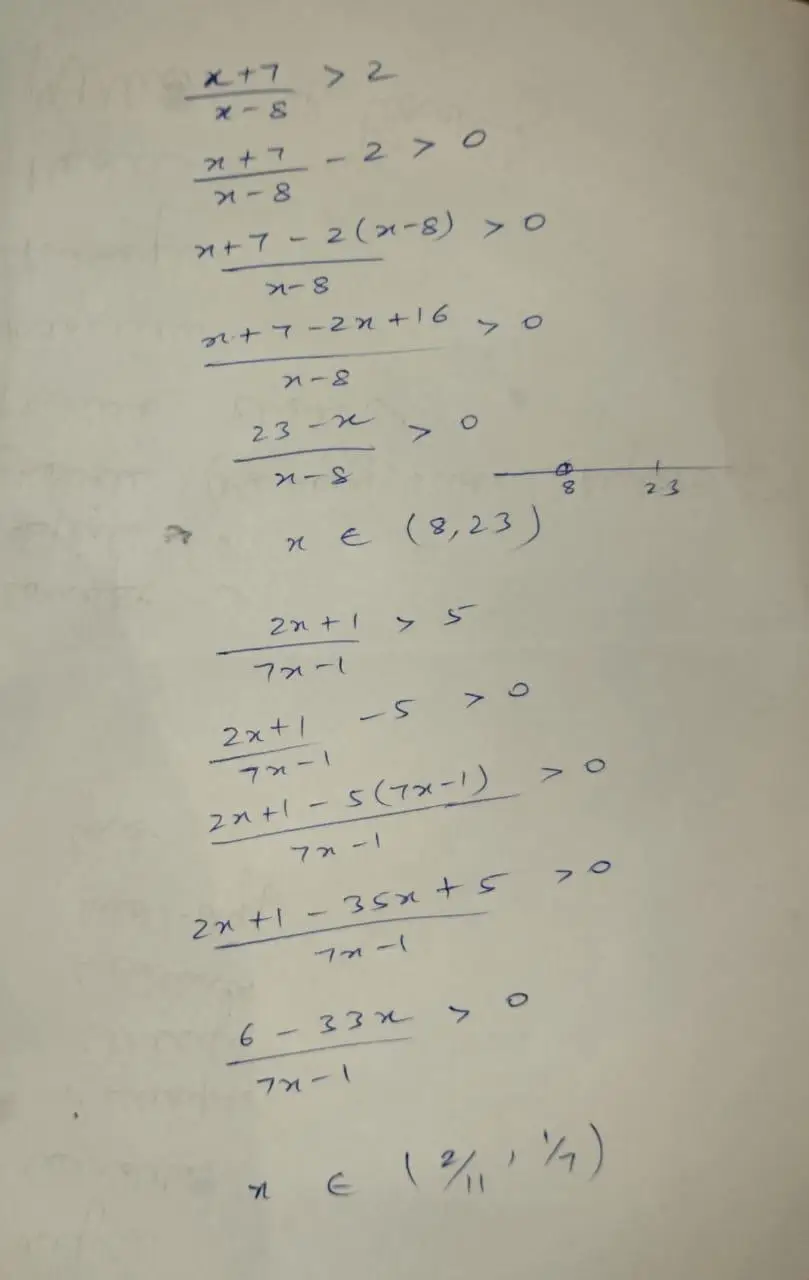 x+7/x-8 > 2
x+7/x-8 - 2 > 0
x+7-2(x-8)/x-8 > 0
x+7-2x+16/x-8 > 0
23-x/x-8 > 0
8 23
x ∈ (8,23)
2x+1/7x-1 > 5
2x+1/7x-1 -5 > 0
2x+1-5(7x-1)/7x-1 > 0
2x+1-35x+5/7x-1 > 0
6-33x/7x-1 > 0
x ∈ (2/11, 1/7)